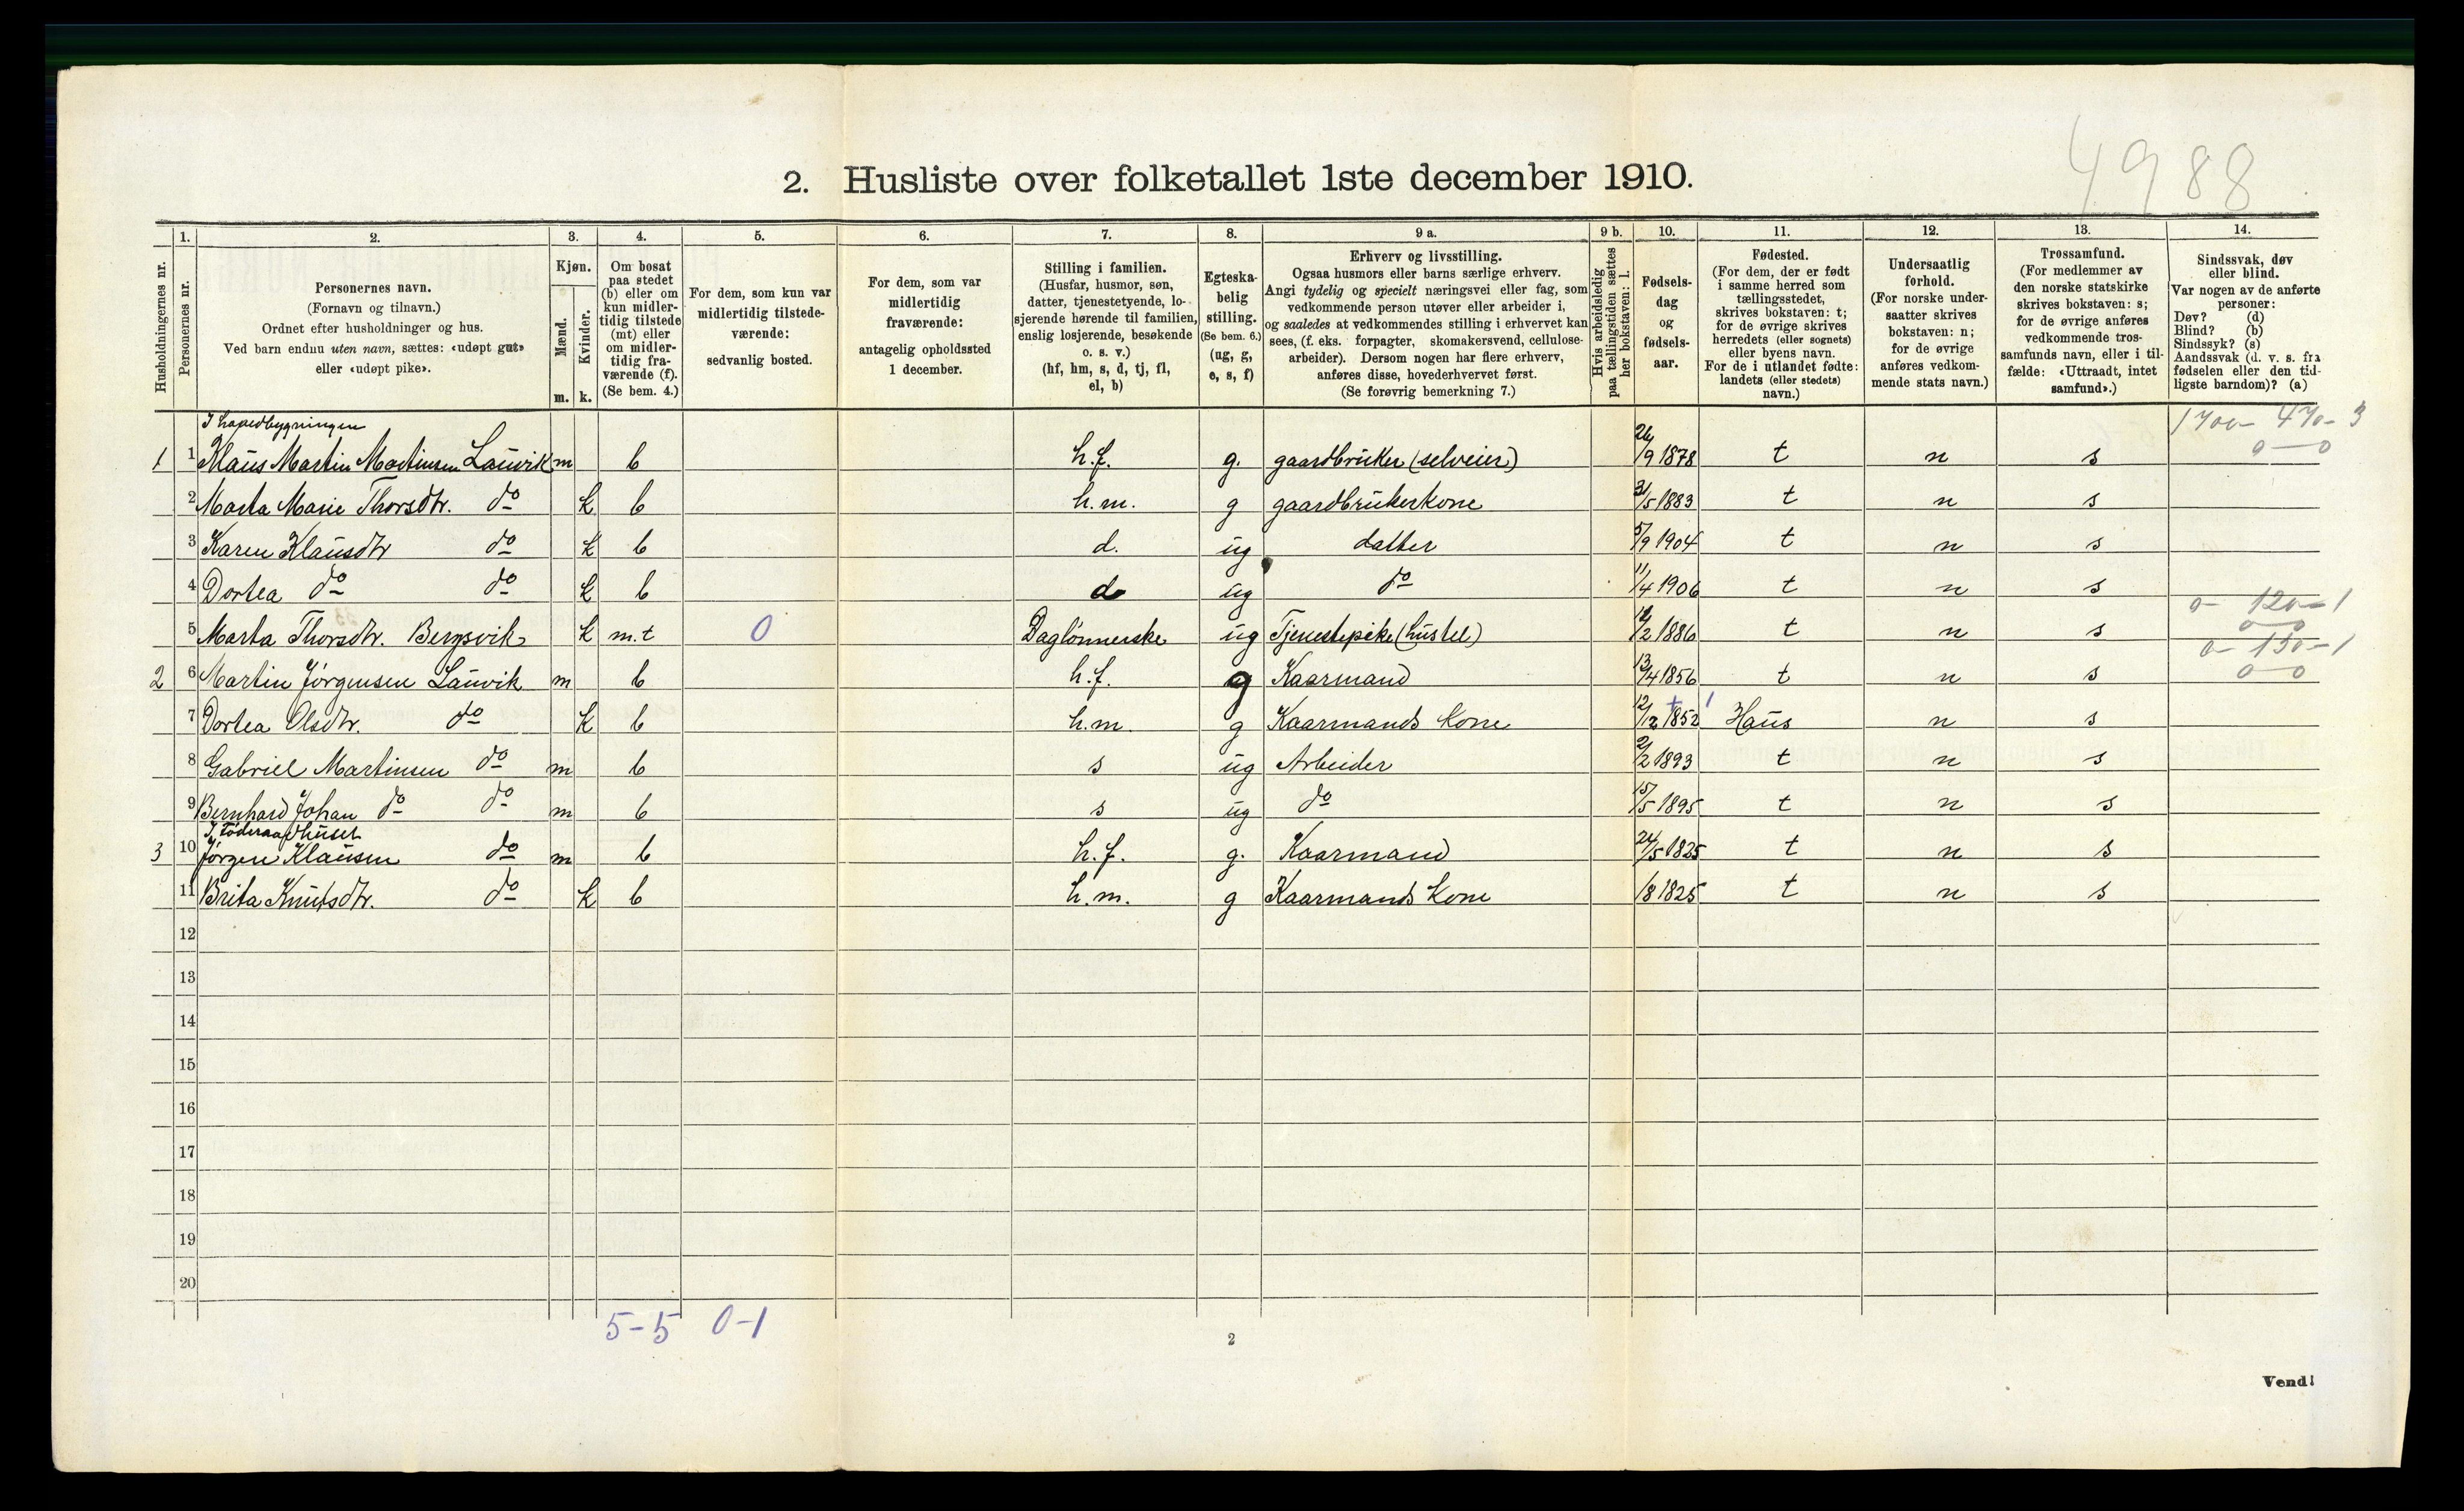 4988
2. Husliste over folketallet 1ste december 1910.
Husholdningernes nr.
1.
Personernes nr.
2.
Personernes navn.
(Fornavn og tilnavn.)
Ordnet efter husholdninger og hus.
Ved barn endnu uten navn, sættes: «udøpt gut»
eller «udøpt pike».
3.
Kjøn.
Mænd.
Kvinder.
m. k.
4.
Om bosat
paa stedet
(b) eller om
kun midler-
tidig tilstede
(mt) eller
om midler-
tidig fra-
værende (f).
(Se bem. 4.)
5.
For dem, som kun var
midlertidig tilstede-
værende:
sedvanlig bosted.
6.
For dem, som var
midlertidig
fraværende:
antagelig opholdssted
1 december.
7.
Stilling i familien.
(Husfar, husmor, søn,
datter, tjenestetyende, lo-
sjerende hørende til familien,
enslig losjerende, besøkende
o. s. v.)
(hf, hm, s, d, tj, fl,
el, b)
8.
Egteska-
belig
stilling.
(Se bem. 6.)
(ug, g,
e, s, f)
9 a.
Erhverv og livsstilling.
Ogsaa husmors eller barns særlige erhverv.
Angi tydelig og specielt næringsvei eller fag, som
vedkommende person utøver eller arbeider i,
og saaledes at vedkommendes stilling i erhvervet kan
sees, (f. eks. forpagter, skomakersvend, cellulose-
arbeider). Dersom nogen har flere erhverv,
anføres disse, hovederhvervet først.
(Se forøvrig bemerkning 7.)
9 b.
Hvis arbeidsledig
paa tællingstiden sættes
her bokstaven: l.
10.
Fødsels-
dag
og
fødsels-
aar.
11.
Fødested.
(For dem, der er født
i samme herred som
tællingsstedet,
skrives bokstaven: t;
for de øvrige skrives
herredets (eller sognets)
eller byens navn.
For de i utlandet fødte:
landets (eller stedets)
navn.)
12.
Undersaatlig
forhold.
(For norske under-
saatter skrives
bokstaven: n;
for de øvrige
anføres vedkom-
mende stats navn.)
13.
Trossamfund.
(For medlemmer av
den norske statskirke
skrives bokstaven: s;
for de øvrige anføres
vedkommende tros-
samfunds navn, eller i til-
fælde: «Uttraadt, intet
samfund».)
14.
Sindssvak, døv
eller blind.
Var nogen av de anførte
personer:
Døv? (d)
Blind? (b)
Sindssyk? (s)
Aandssvak (d. v. s. fra
fødselen eller den tid-
ligste barndom)? (a)
1700- 470-3
0-0
1 1 Klaus Martin Martinsen Lauvik m b h.f. g. gaardbruker (selveier) 26/9 1878 t n s
2 Marta Marie Thorsdtr. do k b h.m. g gaardbrukerkone 31/5 1883 t n s
3 Karen Klausdtr do k b d. ug datter 5/9 1904 t n s
4 Dortea do do k b d ug do 11/4 1906 t n s
0- 120-1
0-0
5 Marta Thorsdtr. Bergsvik k m.t 0 Daglønnerske ug Tjenestepike (hustel) /2 1886 t n s
0- 150-1
0-0
2 6 Martin Jørgensen Lauvik m b h.f. g Kaarmand 13/4 1856 t n s
7 Dortea Olsdtr. do k b h.m. g Kaarmands kone 12/12 1852 Haus n s
8 Gabriel Martinsen do m b s ug Arbeider 2/2 1893 t n s
9 Bernhard Johan do do m b s ug do 15/5 1895 t n s
I Føderaadhuset
3 10 Jørgen Klausen do m b h.f. g. Kaarmand 24/5 1825 t n s
11 Brita Knutsdtr. do k b h.m. g Kaarmands kone /8 1825 t n s
12
13
14
15
16
17
18
19
20
5-5 0-1
2
Vend!